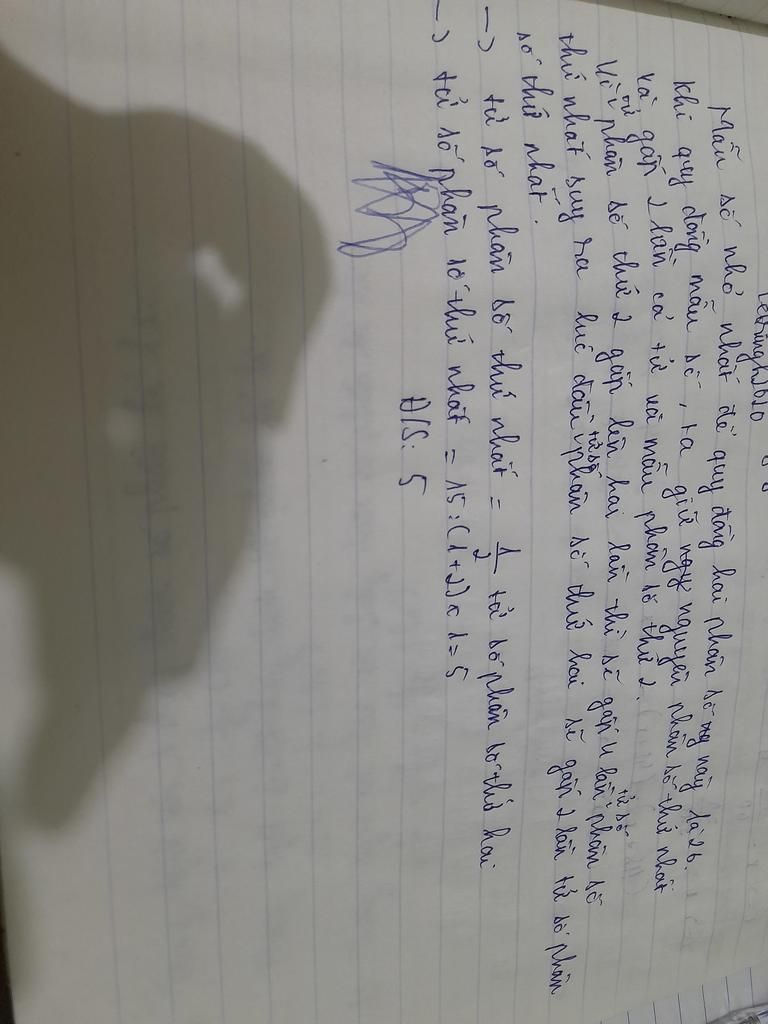 Mẫu số nhỏ nhất để quy đồng hai phân số này là 26.
Khi quy đồng mẫu số, ta giữ nguyên phân số thứ nhất
và gấp 2 lần cả tử và mẫu phân số thứ 2.
Vì tử phân số thứ 2 gấp lên hai lần thì sẽ gấp 4 lần tử số phân số
thứ nhất suy ra lúc đầu tử số phân số thứ hai sẽ gấp 2 lần tử số phân
số thứ nhất.
→ tử số phân số thứ nhất = 1/2 tử số phân số thứ hai
→ tử số phân số thứ nhất = 15:(1+2)x1=5
Đ/S: 5